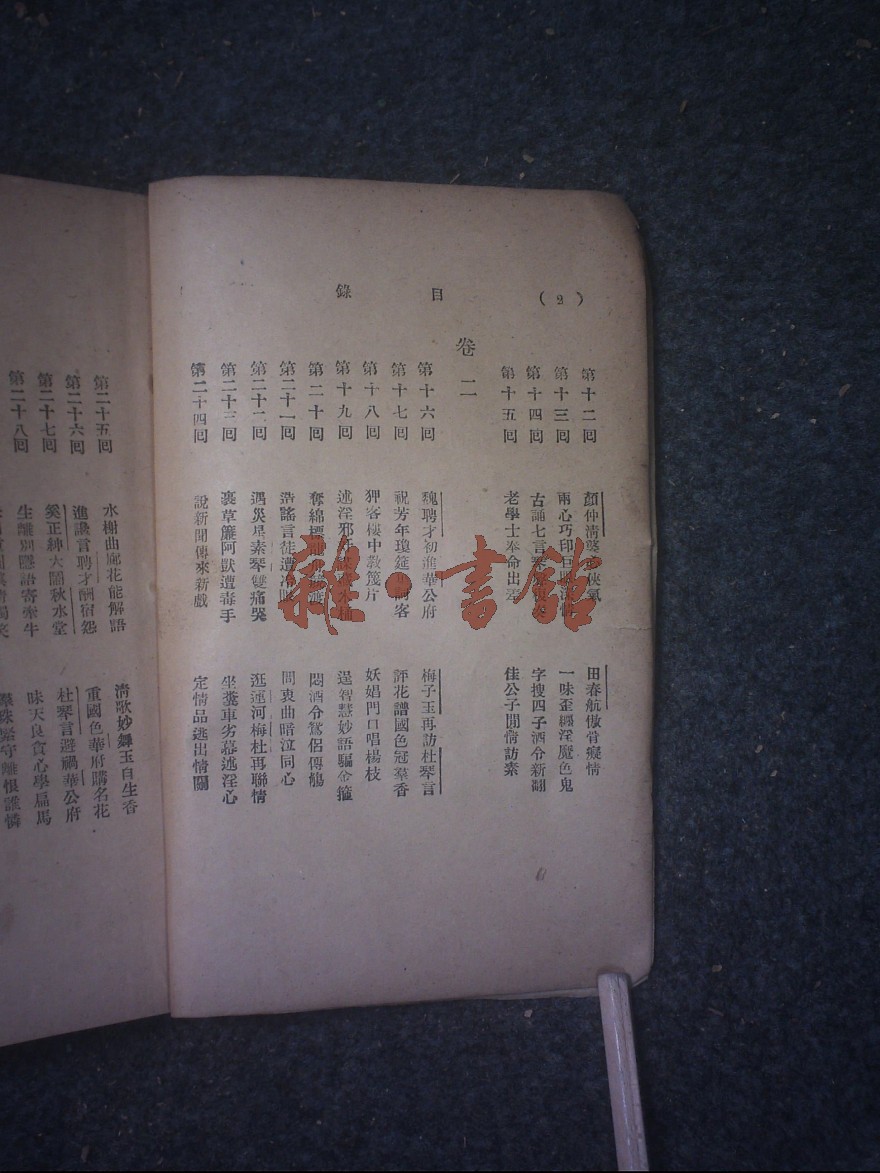 (2)
目錄
第十二回 顏仲清 俠氣 田春航傲骨癡情
第十三回 兩心巧印巨 一味歪纏淫魔色鬼
第十四回 古誦七言琴 字搜四子酒令新翻
第十五回 老學士奉命出 佳公子閒情訪素
卷二
第十六回 魏聘才初進華公府 梅子玉再訪杜琴言
第十七回 祝芳年瓊筵 詞客 評花譜國色冠羣香
第十八回 狎客樓中教篾片 妖娼門口唱楊枝
第十九回 述淫邪 逞智慧妙語騙金箍
第二十回 奪綿標 悶酒令鴛侶傳觴
第二十一回 造謠言徒遭 問衷曲暗泣同心
第二十二回 遇災星素琴雙痛哭 逛運河梅杜再聯情
第二十三回 裹草簾阿獃遭毒手 坐糞車劣幕述淫心
第二十四回 說新聞傳來新戲 定情品逃出情關
第二十五回 水榭曲廊花能解語 清歌妙舞玉自生香
第二十六回 進讒言聘才酬宿怨 重國色華府購名花
第二十七回 奚正紳大鬧秋水堂 杜琴言避禍華公府
第二十八回 生離別隱語寄牽牛 昧天良貪心學扁馬
羣珠緊守離恨誰憐
雜·書館